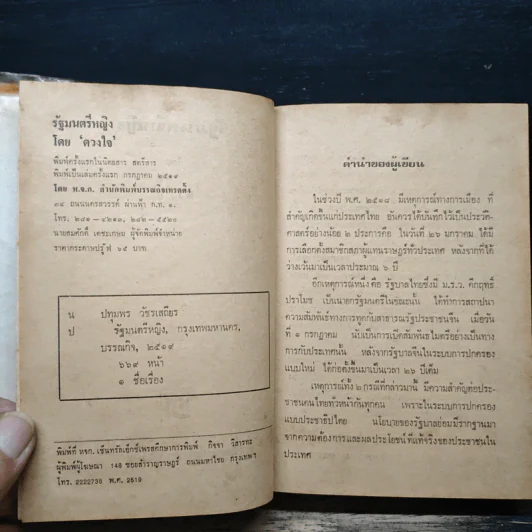 รัฐมนตรีหญิง
โดย 'ดวงใจ'
พิมพ์ครั้งแรกในนิตยสาร สตรีสาร
พิมพ์เป็นเล่มครั้งแรก กรกฎาคม ๒๕๑๙
โดย ห.จ.ก. สำนักพิมพ์บรรณกิจเทรดดิ้ง
๓๔ ถนนนครสวรรค์ ผ่านฟ้า ก.ท. ๑.
โทร.
นายสมศักดิ์ เตชะเกษม ผู้จัดพิมพ์จำหน่าย
ราคากระดาษปรู๊ฟ ๖๕ บาท
น ปทุมพร วัชรเสถียร
ป รัฐมนตรีหญิง, กรุงเทพมหานคร,
บรรณกิจ, ๒๕๑๙
๖๖๙ หน้า
๑ ชื่อเรื่อง
พิมพ์ที่ หจก. เซ็นทรัลเอ็กซ์เพรสศึกษาการพิมพ์
ผู้พิมพ์ผู้โฆษณา 148 ซอยสำราญราษฎร์ ถนนมหาไชย กรุงเทพฯ
โทร. 2222739 พ.ศ. 2519
คำนำของผู้เขียน
ในช่วงปี พ.ศ. ๒๕๑๘ มีเหตุการณ์ทางการเมือง ที่
สำคัญเกิดขึ้นแก่ประเทศไทย อันควรได้บันทึกไว้เป็นประวัติ-
ศาสตร์อย่างน้อย ๒ ประการคือ ในวันที่ ๒๖ มกราคม ได้มี
การเลือกตั้งสมาชิกสภาผู้แทนราษฎรทั่วประเทศ หลังจากที่ได้
ว่างเว้นมาเป็นเวลาประมาณ ๖ ปี
อีกเหตุการณ์หนึ่งคือ รัฐบาลไทยซึ่งมี ม.ร.ว. คึกฤทธิ์
ปราโมช เป็นนายกรัฐมนตรีในขณะนั้น ได้ทำการสถาปนา
ความสัมพันธ์ทางการทูตกับสาธารณรัฐประชาชนจีน เมื่อวัน
ที่ ๑ กรกฎาคม นับเป็นการเปิดสัมพันธไมตรีอย่างเป็นทาง
การกับประเทศนั้น หลังจากรัฐบาลจีนในระบบการปกครอง
แบบใหม่ ได้ก่อตั้งขึ้นมาเป็นเวลา ๒๖ ปีเต็ม
เหตุการณ์ทั้ง ๒ กรณีที่กล่าวมานี้ มีความสำคัญต่อประ-
ชาชนคนไทยทั่วหน้ากันทุกคน เพราะในระบบการปกครอง
แบบประชาธิปไตย นโยบายของรัฐบาลย่อมมีรากฐานมา
จากความต้องการและผลประโยชน์ ที่แท้จริงของประชาชนใน
ประเทศ